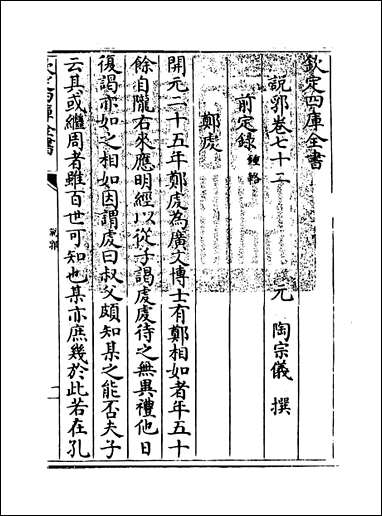 欽定四庫全書
說郛卷七十二 元 陶宗儀 撰
前定録 鍾輅
鄭虔
開元二十五年鄭虔為廣文博士有鄭相如者年五十
餘自隴右來應明經以從子謁虔虔待之無異禮他日
復謁亦如之相如因謂虔曰叔父頗知某之能否夫子
云其或繼周者雖百世可知也某亦庶幾於此若在孔
欽定四庫全書
說郛